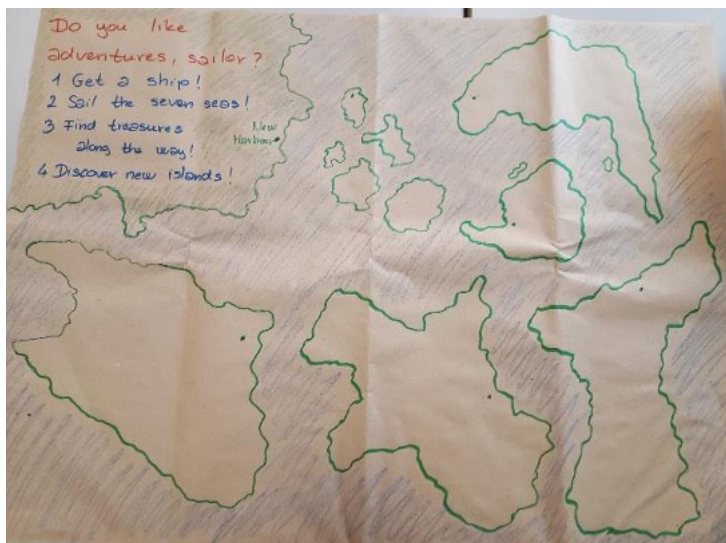 Do you like
adventures, sailor?
1 Get a ship!
2 Sail the seven seas!
3 Find treasures
along the way!
4 Discover new islands!
New
Harbour